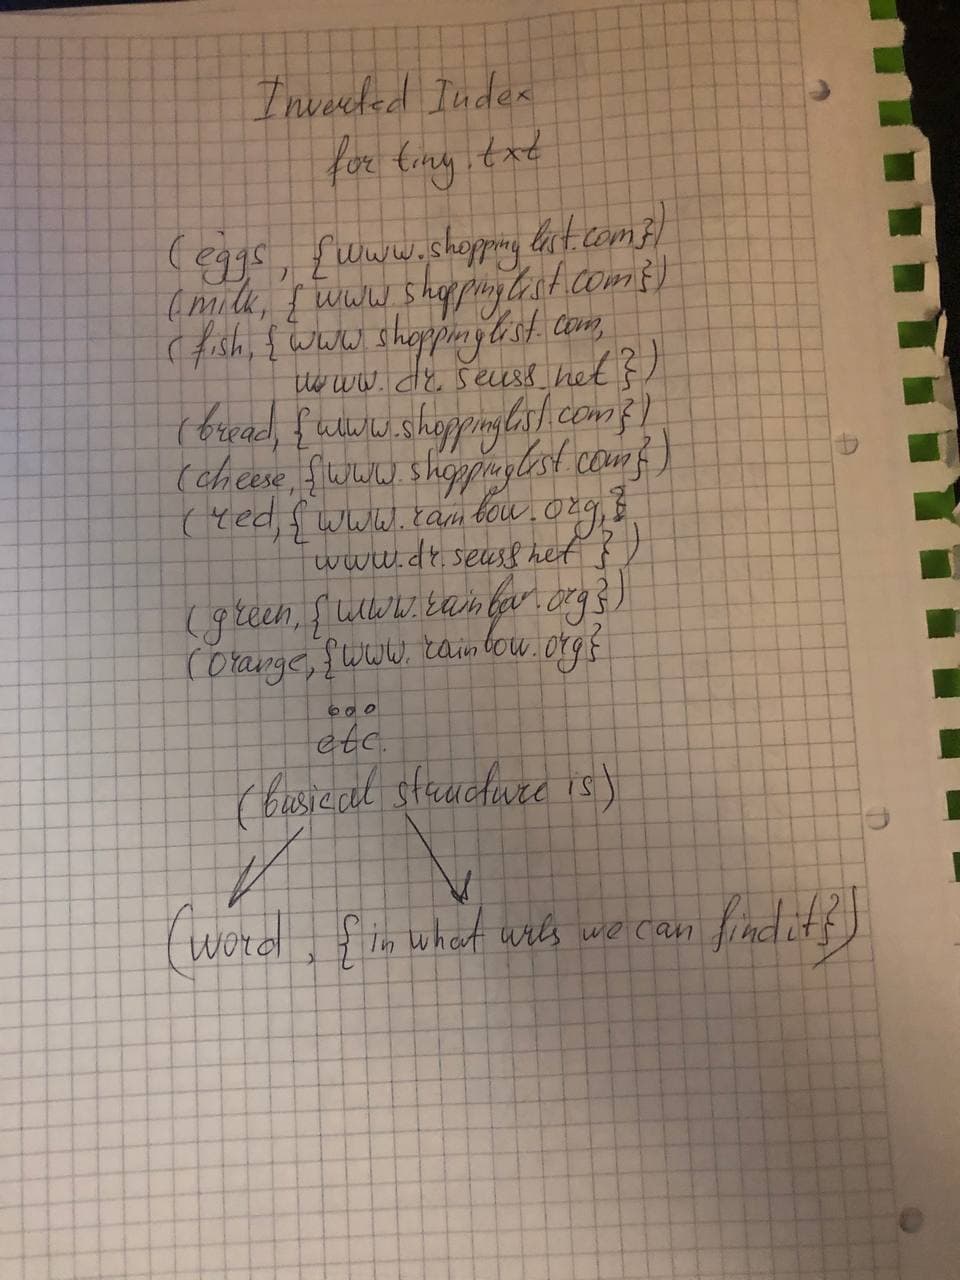 Inverted Index
for tiny.txt
(eggs, {www.shoppinglist.com})
(milk, {www.shoppinglist.com})
(fish, {www.shoppinglist.com,
www.dr.seuss.net})
(bread, {www.shoppinglist.com})
(cheese, {www.shoppinglist.com})
(red, {www.rainbow.org,
www.dr.seuss.net})
(green, {www.rainbow.org})
(orange, {www.rainbow.org}
ooo
etc.
(basical structure is)
(word, {in what urls we can find it})